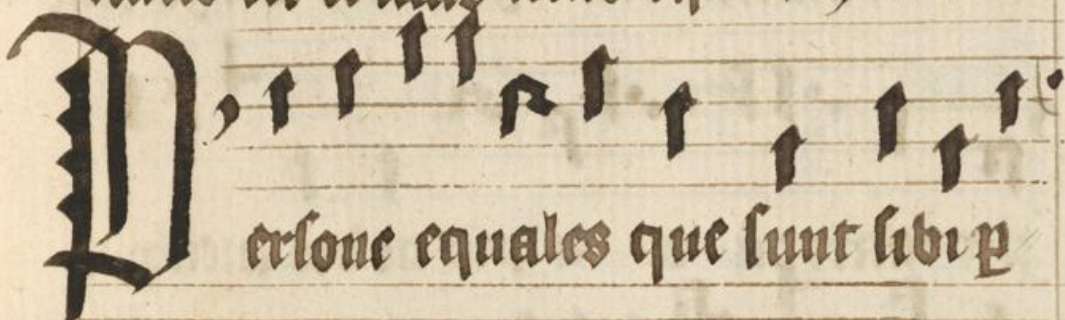 Persone equales que sunt sibi ꝑ